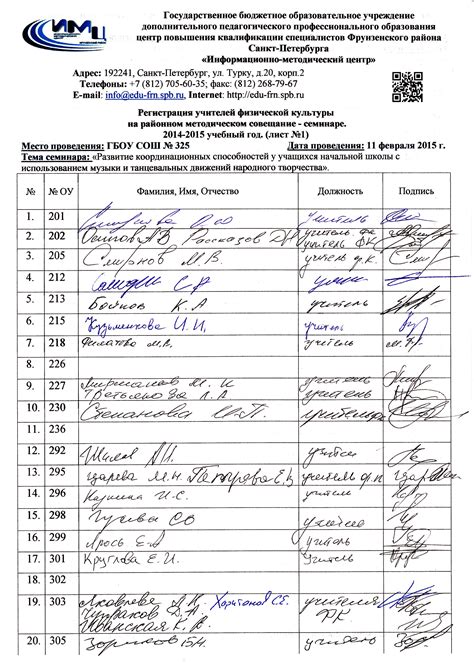 ИМЦ
Государственное бюджетное образовательное учреждение
дополнительного педагогического профессионального образования
центр повышения квалификации специалистов Фрунзенского района
Санкт-Петербурга
«Информационно-методический центр»
Адрес: 192241, Санкт-Петербург, ул. Турку, д.20, корп.2
Телефоны: +7 (812) 705-60-35; факс: (812) 268-79-67
E-mail: info@edu-frn.spb.ru, Internet: http://edu-frn.spb.ru
Регистрация учителей физической культуры
на районном методическом совещание - семинаре.
2014-2015 учебный год. (лист №1)
Место проведения: ГБОУ СОШ № 325 Дата проведения: 11 февраля 2015 г.
Тема семинара: «Развитие координационных способностей у учащихся начальной школы с
использованием музыки и танцевальных движений народного творчества».
№ № ОУ Фамилия, Имя, Отчество Должность Подпись
1. 201 учитель
2. 202 Осипов А.В. Рассказов учитель ФК
3. 205 Смирнов М.В. учитель ф.к.
4. 212
5. 213 Бойков К.А учитель
6. 215 Кузьминкова И.И. учитель
7. 218 Филатова М.В. учитель
8. 226
9. 227 учитель
Третьякова Л.А учитель
10. 230 Степанова учитель
11. 236
12. 292 учитель
13. 295 Царева М.Н Петрова Е.В учитель ф.к
14. 296 И.С. учитель
15. 298 Гусева СО учитель
16. 299 Ярось Е.А учитель
17. 301 Круглова Е.И. Учитель
18. 302
19. 303 Яковлева А.К. Харитонов С.Е. учителя
ФК
Иванская К.В.
20. 305 Зориков Б.Н. учитель